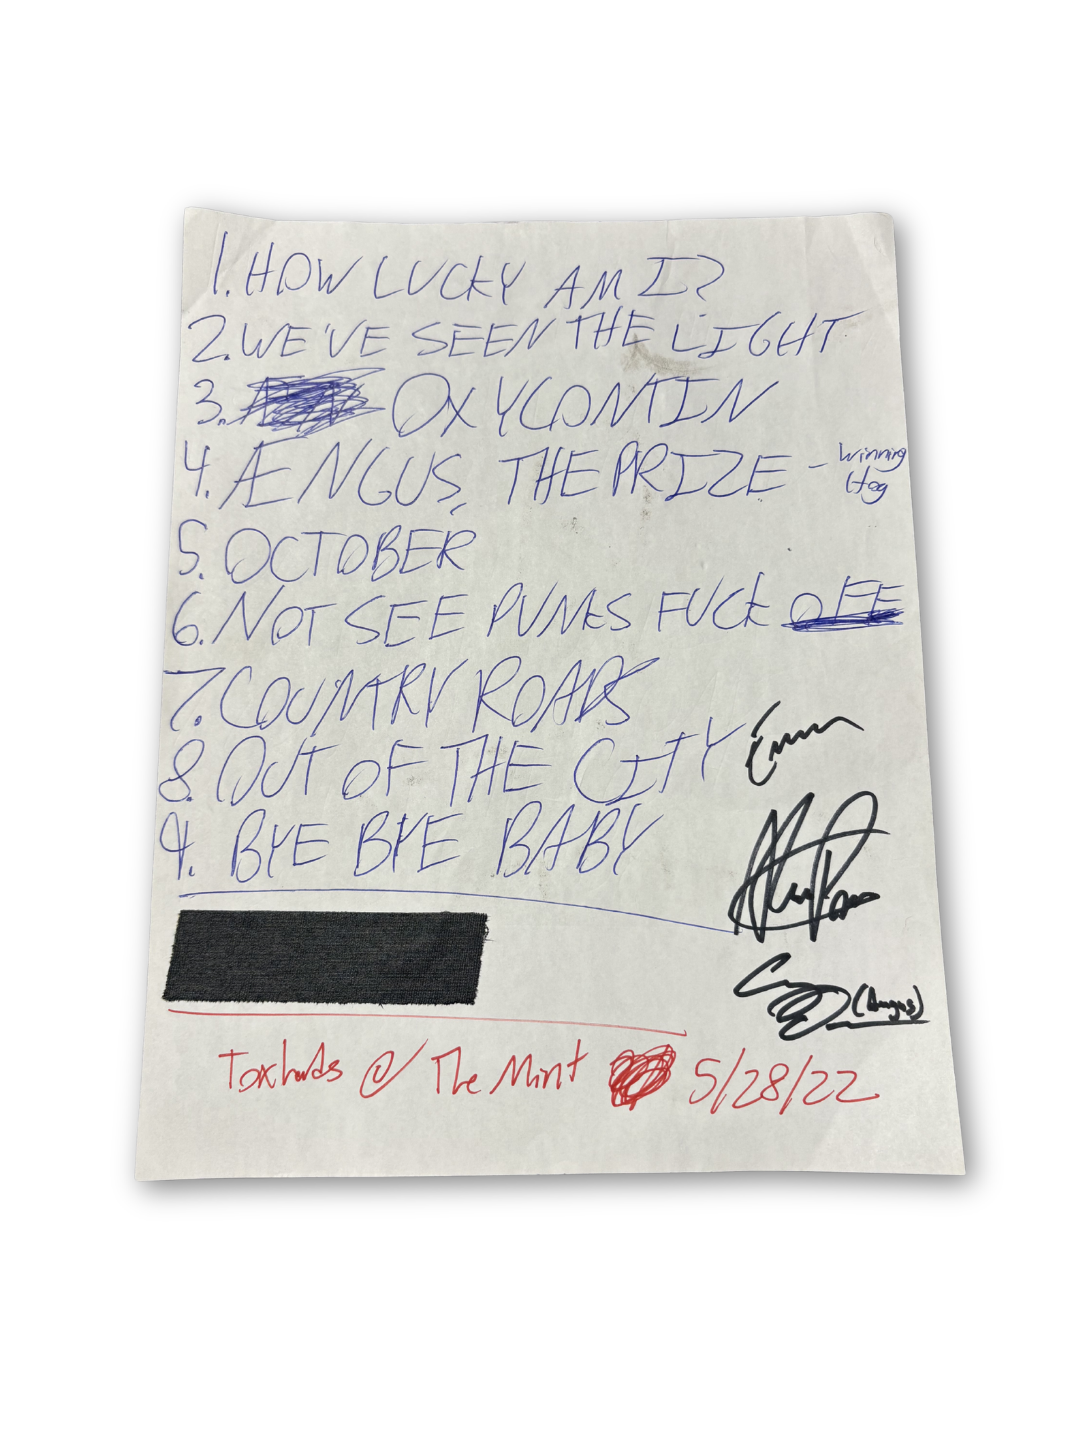 1. HOW LUCKY AM I?
2. WE'VE SEEN THE LIGHT
3. OXYCONTIN
4. ÆNGUS, THE PRIZE - Winning Hog
5. OCTOBER
6. NOT SEE PUNKS FUCK OFF
7. COUNTRY ROADS
8. OUT OF THE CITY
9. BYE BYE BABY
(Angus)
Toxhards @ The Mint 5/28/22